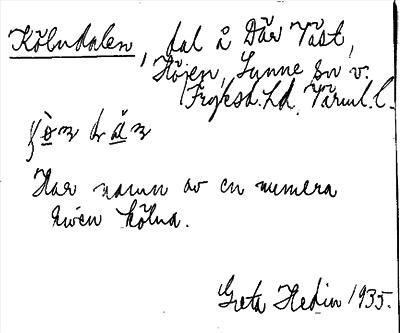 Kölndalen, dal å Där Väst,
Höjen, Lunne sn v.
Fryksd. hd. Värml. l.
Har namn av en numera
riven kölna.
Greta Hedin 1935.